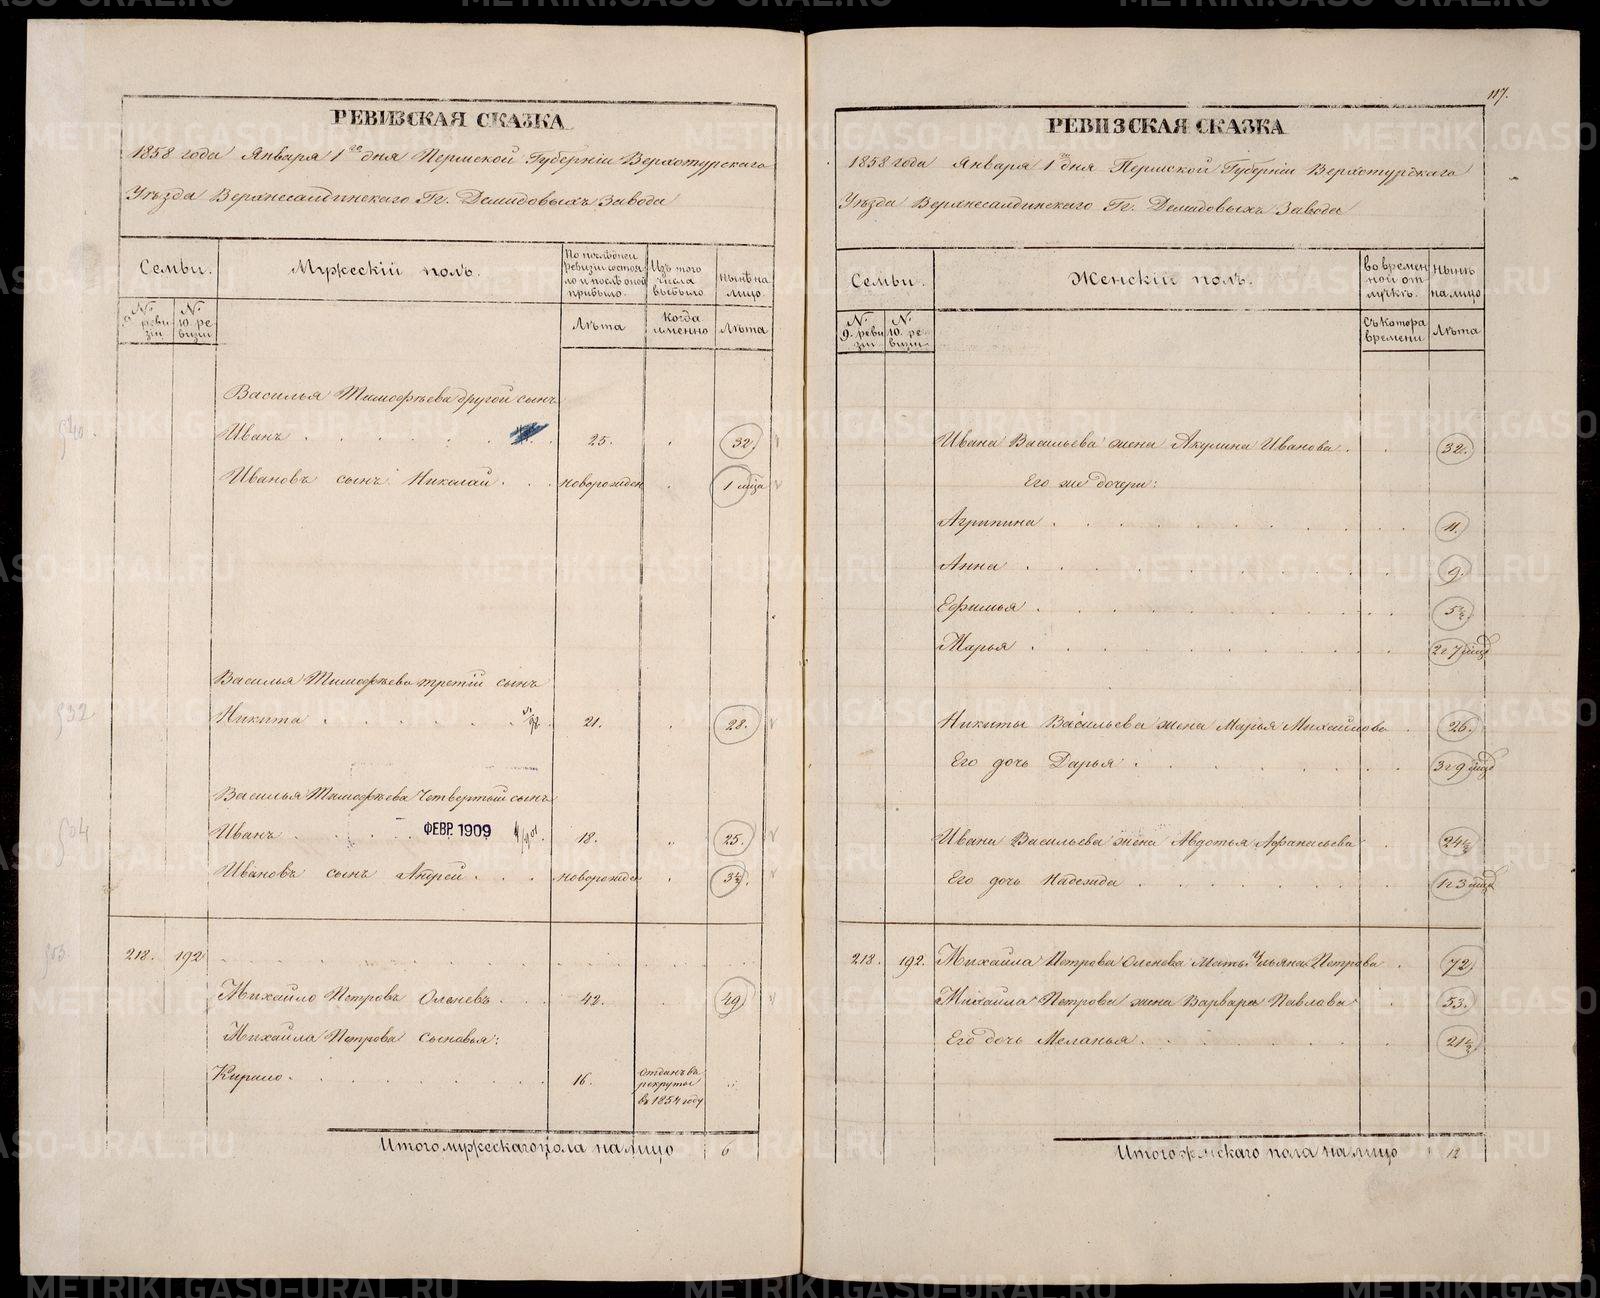 РЕВИЗСКАЯ СКАЗКА
1858 года Января 1го дня Пермской Губерніи Верхотурскаго
Уѣзда Верхнесалдинскаго Гг. Демидовыхъ Завода
Семьи.
Мужескій полъ.
По послѣдней ревизіи состояло и послѣ оной прибыло.
Изъ того числа выбыло
Нынѣ на лицо.
№ 9. ревизіи
№ 10. ревизіи
Лѣта
Когда именно
Лѣта
Василья Тимофѣева другой сынъ
Иванъ 25. 32.
Ивановъ сынъ Николай новорожден 1 мѣца
Василья Тимофѣева третій сынъ
Никита 21. 28.
Василья Тимофѣева Четвертый сынъ
Иванъ ФЕВР. 1909 18. 25.
Ивановъ сынъ Андрей новорожден 3½.
218. 192
Михайло Петровъ Оленевъ 42. 49
Михайла Петрова сыновья:
Кирило. 16. отданъ въ рекруты въ 1854 году
Итого мужескаго пола на лицо 6
117.
РЕВИЗСКАЯ СКАЗКА
1858 года Января 1го дня Пермской Губерніи Верхотурскаго
Уѣзда Верхнесалдинскаго Гг. Демидовыхъ Завода
Семьи.
Женскій полъ.
во временной отлучкѣ.
Нынѣ на лицо
№ 9. ревизіи
№ 10. ревизіи
Съ котора времени
Лѣта
Ивана Васильева жена Акулина Иванова. 32.
Его же дочери:
Агрипина 11.
Анна 9.
Ефимья 5½.
Марья 2 г 7 мѣцъ
Никиты Васильева жена Марья Михайлова 26.
Его дочь Дарья 3 г 9 мѣцъ
Ивана Васильева жена Авдотья Афанасьева 24½
Его дочь Надежда 1 г 3 мѣца
218. 192. Михайла Петрова Оленева Мать Ульяна Петрова 72
Михайла Петрова жена Варвара Павлова 53.
Его дочь Меланья 21½
Итого женскаго пола на лицо 12
METRIKI.GASO-URAL.RU